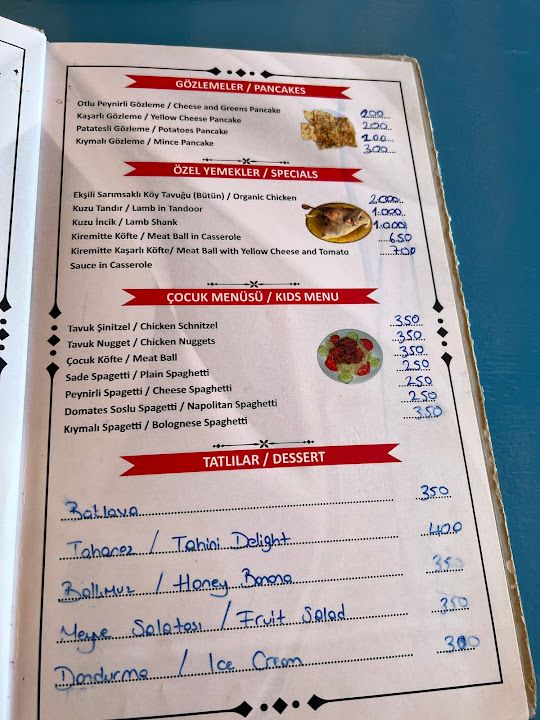 GÖZLEMELER / PANCAKES
Otlu Peynirli Gözleme / Cheese and Greens Pancake 200
Kaşarlı Gözleme / Yellow Cheese Pancake 200
Patatesli Gözleme / Potatoes Pancake 200
Kıymalı Gözleme / Mince Pancake 300
ÖZEL YEMEKLER / SPECIALS
Ekşili Sarımsaklı Köy Tavuğu (Bütün) / Organic Chicken 2.000
Kuzu Tandır / Lamb in Tandoor 1.000
Kuzu İncik / Lamb Shank 1.000
Kiremitte Köfte / Meat Ball in Casserole 650
Kiremitte Kaşarlı Köfte/ Meat Ball with Yellow Cheese and Tomato 700
Sauce in Casserole
ÇOCUK MENÜSÜ / KIDS MENU
Tavuk Şinitzel / Chicken Schnitzel 350
Tavuk Nugget / Chicken Nuggets 350
Çocuk Köfte / Meat Ball 350
Sade Spagetti / Plain Spaghetti 250
Peynirli Spagetti / Cheese Spaghetti 250
Domates Soslu Spagetti / Napolitan Spaghetti 250
Kıymalı Spagetti / Bolognese Spaghetti 350
TATLILAR / DESSERT
Baklava 350
Taharez / Tahini Delight 400
Ballı Muz / Honey Banana 350
Meyve Salatası / Fruit Salad 350
Dondurma / Ice Cream 300